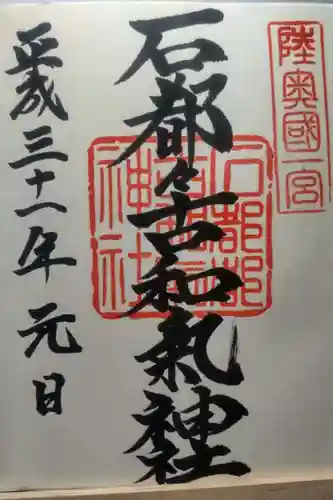 陸奥國一宮
石都々古和氣神社
石都都古和氣神社
平成三十一年元日